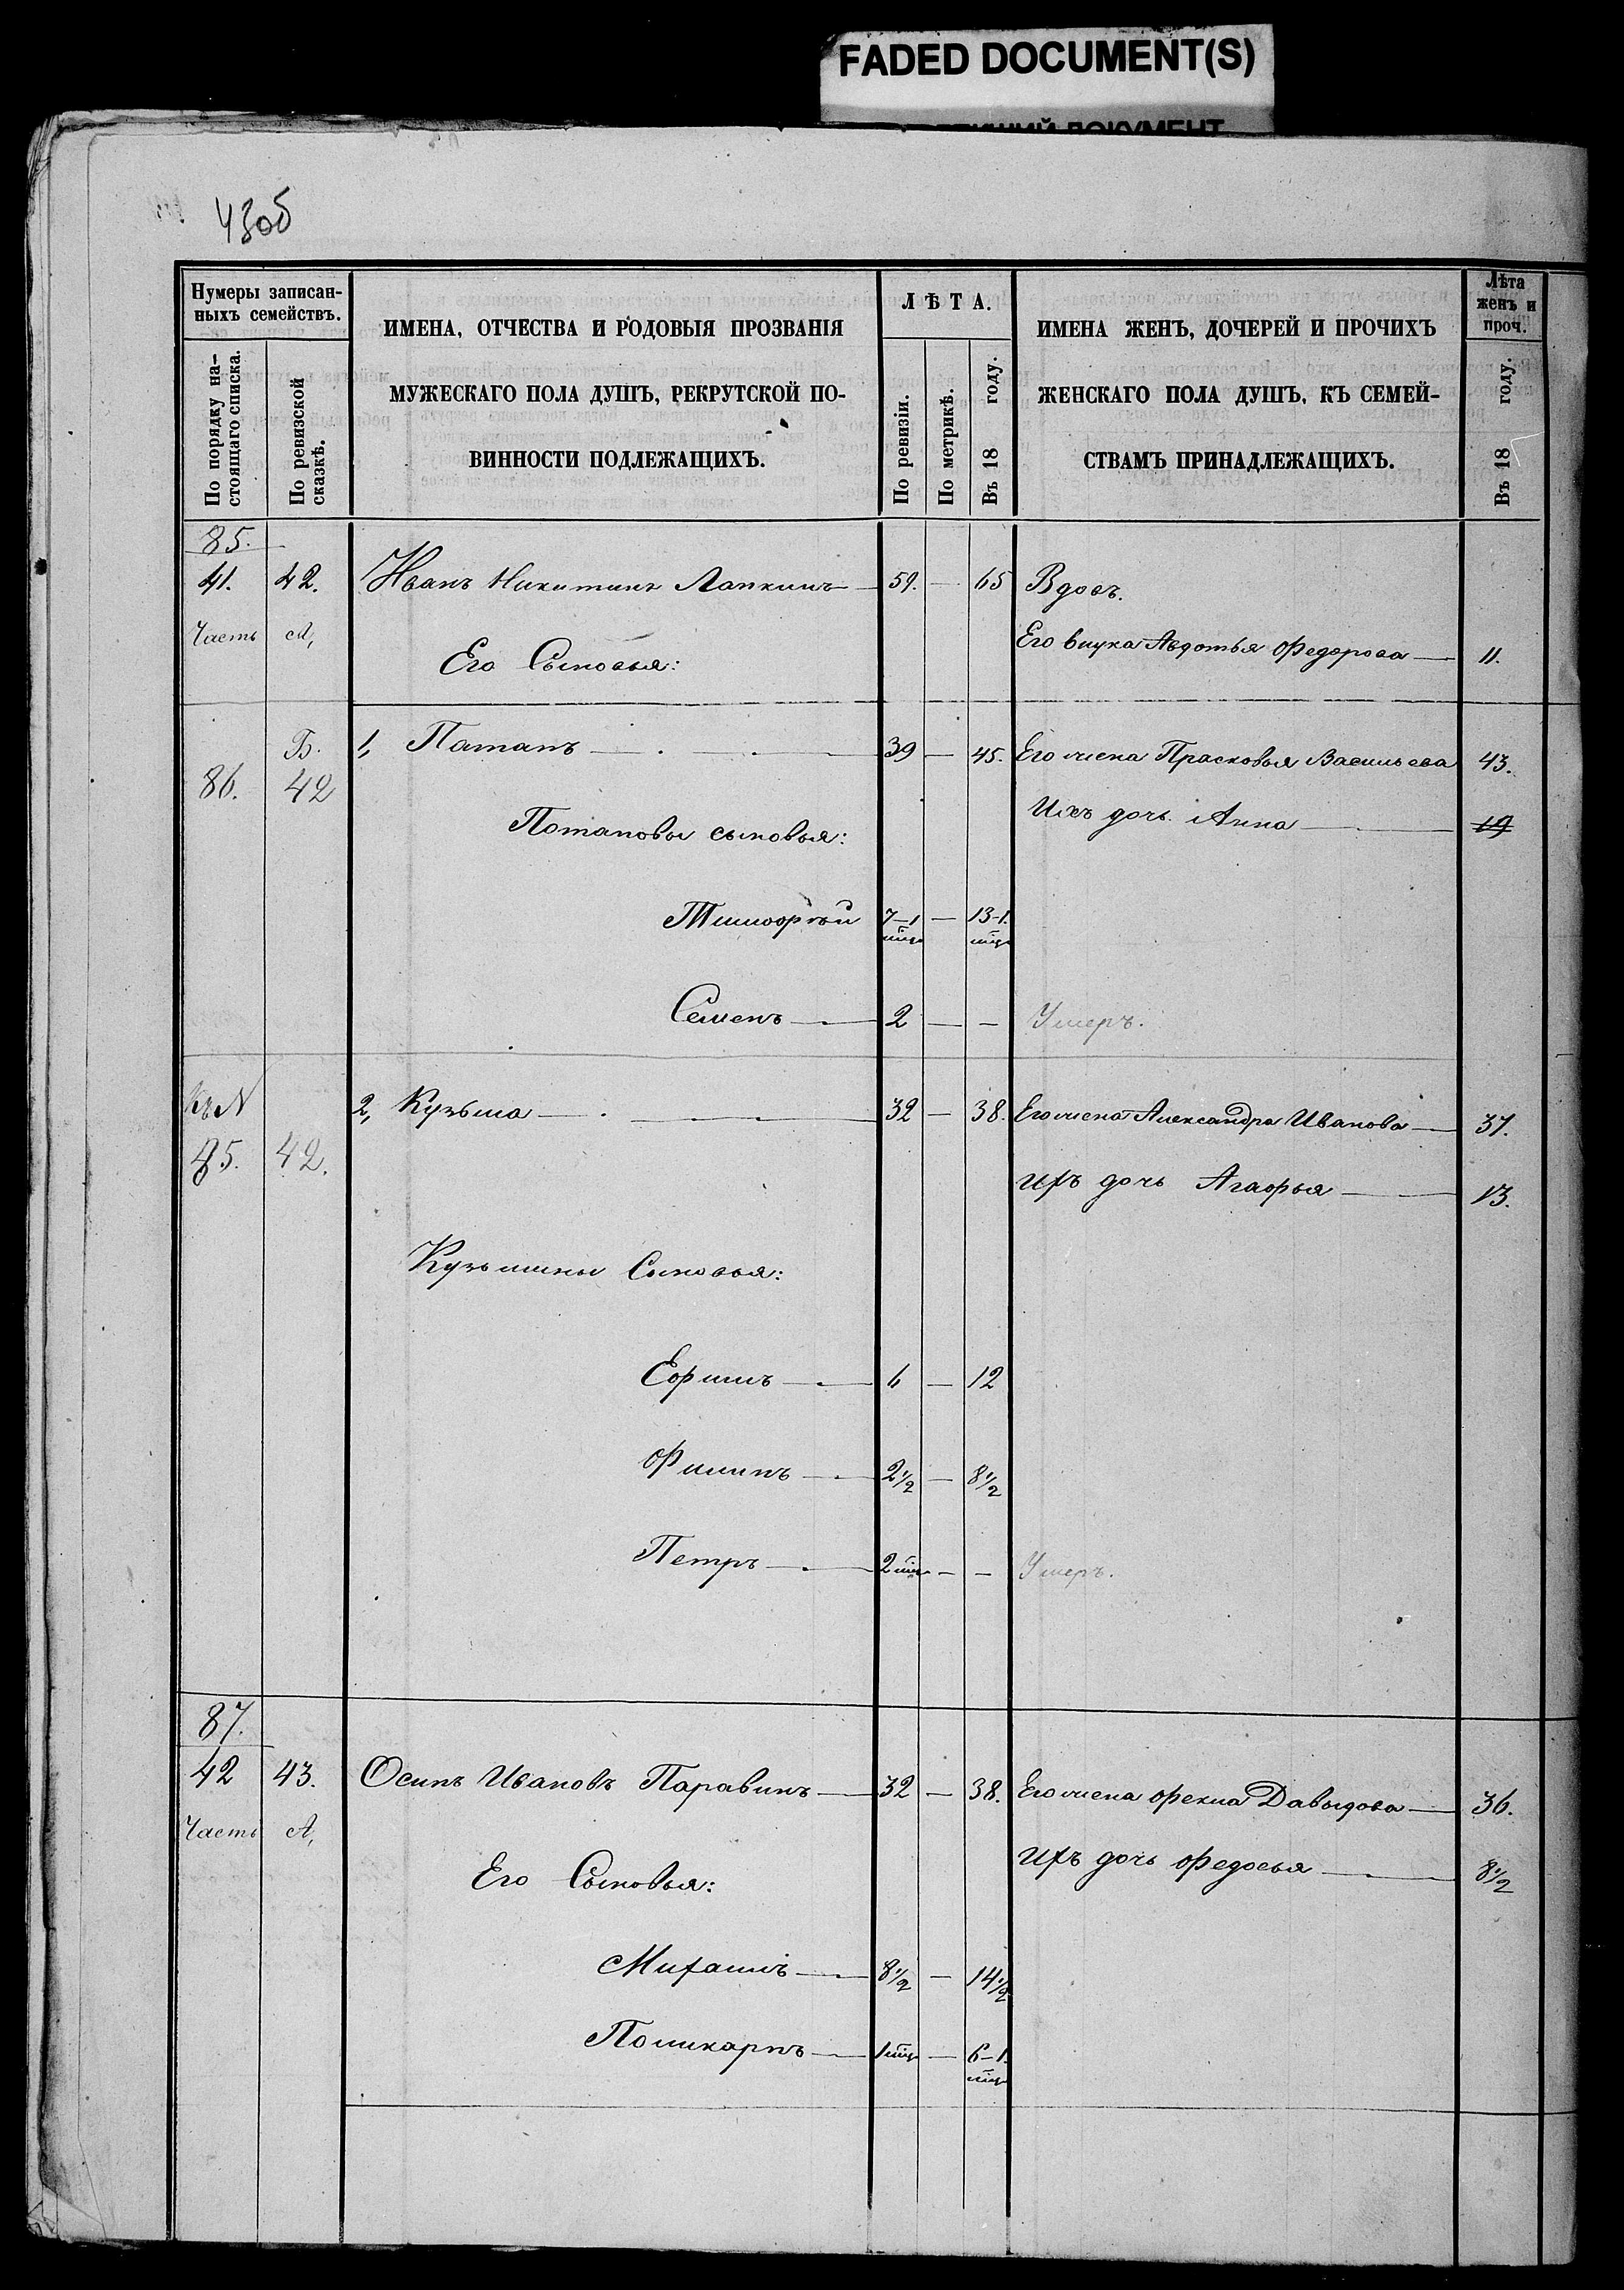 FADED DOCUMENT(S)
43об
Нумеры записан-
ныхъ семействъ.
По порядку на-
стоящаго списка.
По ревизской
сказкѣ.
ИМЕНА, ОТЧЕСТВА И РОДОВЫЯ ПРОЗВАНІЯ
МУЖЕСКАГО ПОЛА ДУШЪ, РЕКРУТСКОЙ ПО-
ВИННОСТИ ПОДЛЕЖАЩИХЪ.
ЛѢТА.
По ревизіи.
По метрикѣ.
Въ 18 году.
ИМЕНА ЖЕНЪ, ДОЧЕРЕЙ И ПРОЧИХЪ
ЖЕНСКАГО ПОЛА ДУШЪ, КЪ СЕМЕЙ-
СТВАМЪ ПРИНАДЛЕЖАЩИХЪ.
Лѣта
женъ и
проч.
Въ 18 году.
85.
41. 42. Иванъ Никитинъ Лапкинъ — 59. — 65 Вдовъ.
Часть А,
Его внука Авдотья Федорова — 11.
Его Сыновья:
Б. 1, Патапъ — 39 — 45. Его жена Прасковья Васильева 43.
86. 42
Ихъ дочь Анна — 19
Потаповы сыновья:
Тимофѣй 7-1 мц — 13-1. мц
Семенъ — 2 — — Умеръ.
Къ N 2, Кузьма — 32 — 38. Его жена Александра Иванова — 37.
85. 42.
Ихъ дочь Агафья — 13.
Кузьмины Сыновья:
Ефимъ — 6 — 12
Филипъ — 2 1/2 — 8 1/2
Петръ — 2 мц — — Умеръ.
87.
42 43. Осипъ Ивановъ Паравинъ — 32 — 38. Его жена Фекла Давыдова — 36.
Часть А,
Ихъ дочь Федосья — 8 1/2
Его Сыновья:
Михаилъ — 8 1/2 — 14 1/2
Поликарпъ — 1 мц — 6-1. мц